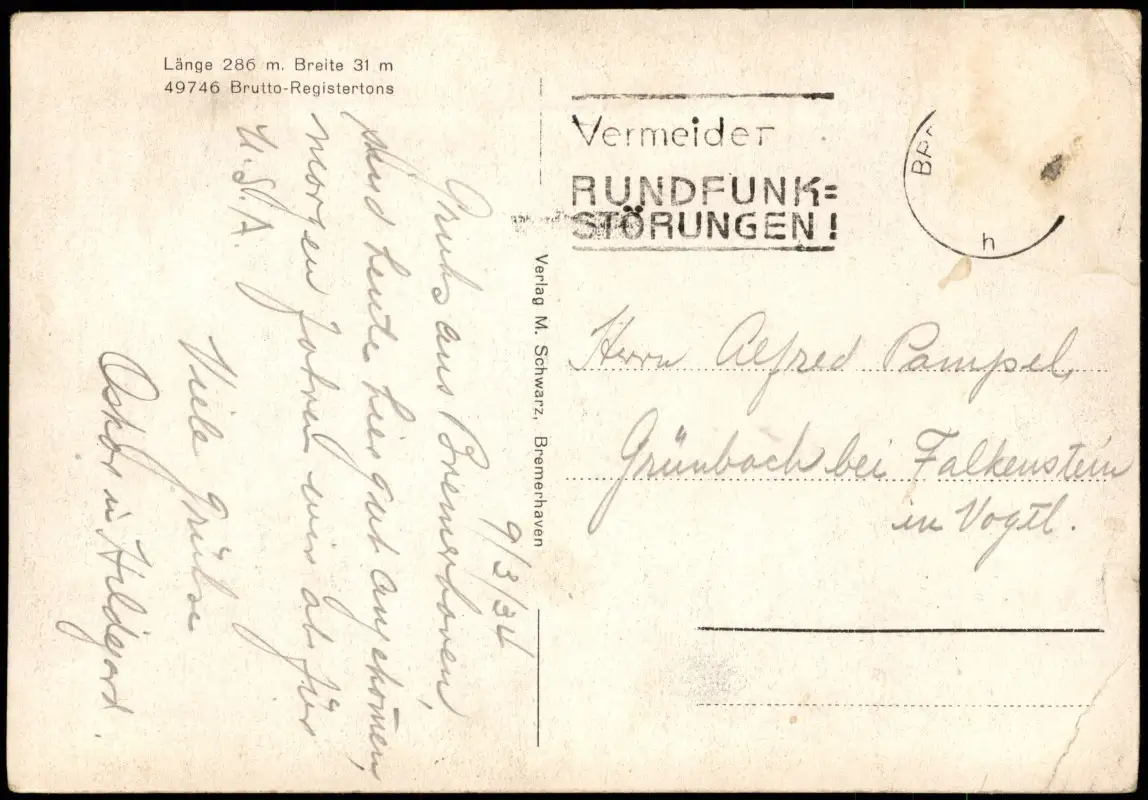 Länge 286 m. Breite 31 m
49746 Brutto-Registertons
9/3/34
Gruhs aus Bremerhaven,
sind heute hier gut angekom̄en,
morgen fahren wir ab für
U.S.A.
Viele Grühse
Oskar u Hildegard.
Verlag M. Schwarz, Bremerhaven
Vermeidet
RUNDFUNK=
STÖRUNGEN!
h
Herrn Alfred Pampel,
Grünbach bei Falkenstein
in Vogtl.